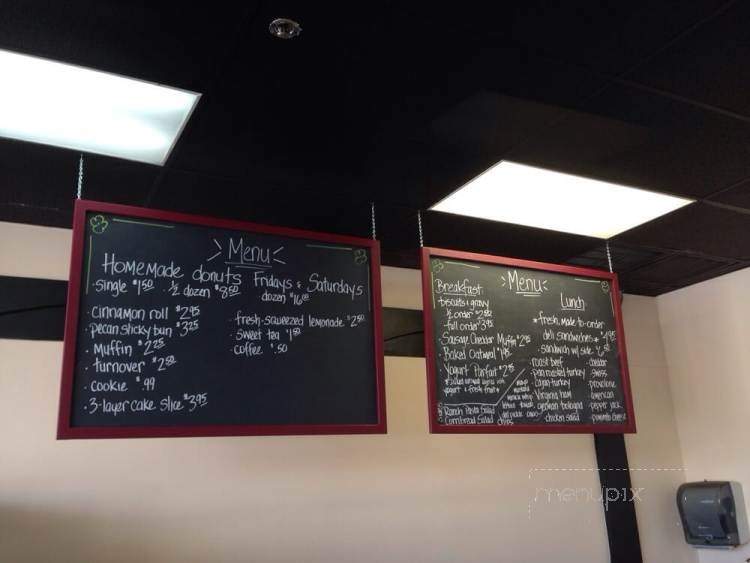 Menu
Homemade donuts Fridays & Saturdays
· single $1.50 · ½ dozen $8.50 dozen $16.00
· cinnamon roll $2.95
· pecan sticky bun $3.25
· muffin $2.25
· turnover $2.50
· cookie $.99
· 3-layer cake slice $3.95
· fresh-squeezed lemonade $2.50
· sweet tea $1.50
· coffee $.50
Menu
Breakfast
biscuits & gravy
½ order $2.50
full order $3.95
· Sausage Cheddar Muffin $2.95
· Baked Oatmeal $1.95
· Yogurt Parfait $2.95
yogurt & fresh fruit *
Ranch Pasta Salad
Cornbread Salad
chips
Lunch
* fresh, made-to-order
deli sandwiches *
· sandwich w/ side $6.50
· roast beef
· pan roasted turkey
· cajun turkey
· Virginia ham
· german bologna
· chicken salad
· cheddar
· swiss
· provolone
· american
· pepper jack
· pimento cheese
mayo
mustard
lettuce
menupix